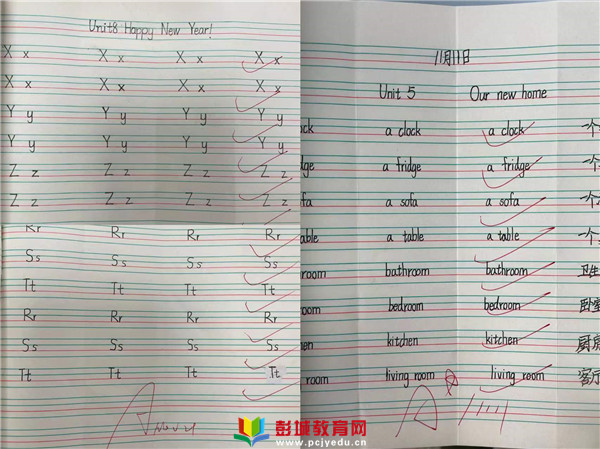 Unit8 Happy New Year!
X x X x X x X x
X x X x X x X x
Y y Y y Y y Y y
Y y Y y Y y Y y
Z z Z z Z z Z z
Z z Z z Z z Z z
Rr Rr Rr Rr
Ss Ss Ss Ss
Tt Tt Tt Tt
Rr Rr Rr Rr
Ss Ss Ss Ss
Tt Tt Tt Tt
11月11日
Unit 5 Our new home
ck a clock a clock 一个
dge a fridge a fridge 一个
fa a sofa a sofa 一个
able a table a table 一个
room bathroom bathroom 卫生
room bedroom bedroom 卧室
en kitchen kitchen 厨房
room living room living room 客厅
彭城教育网
www.pcjyedu.cn